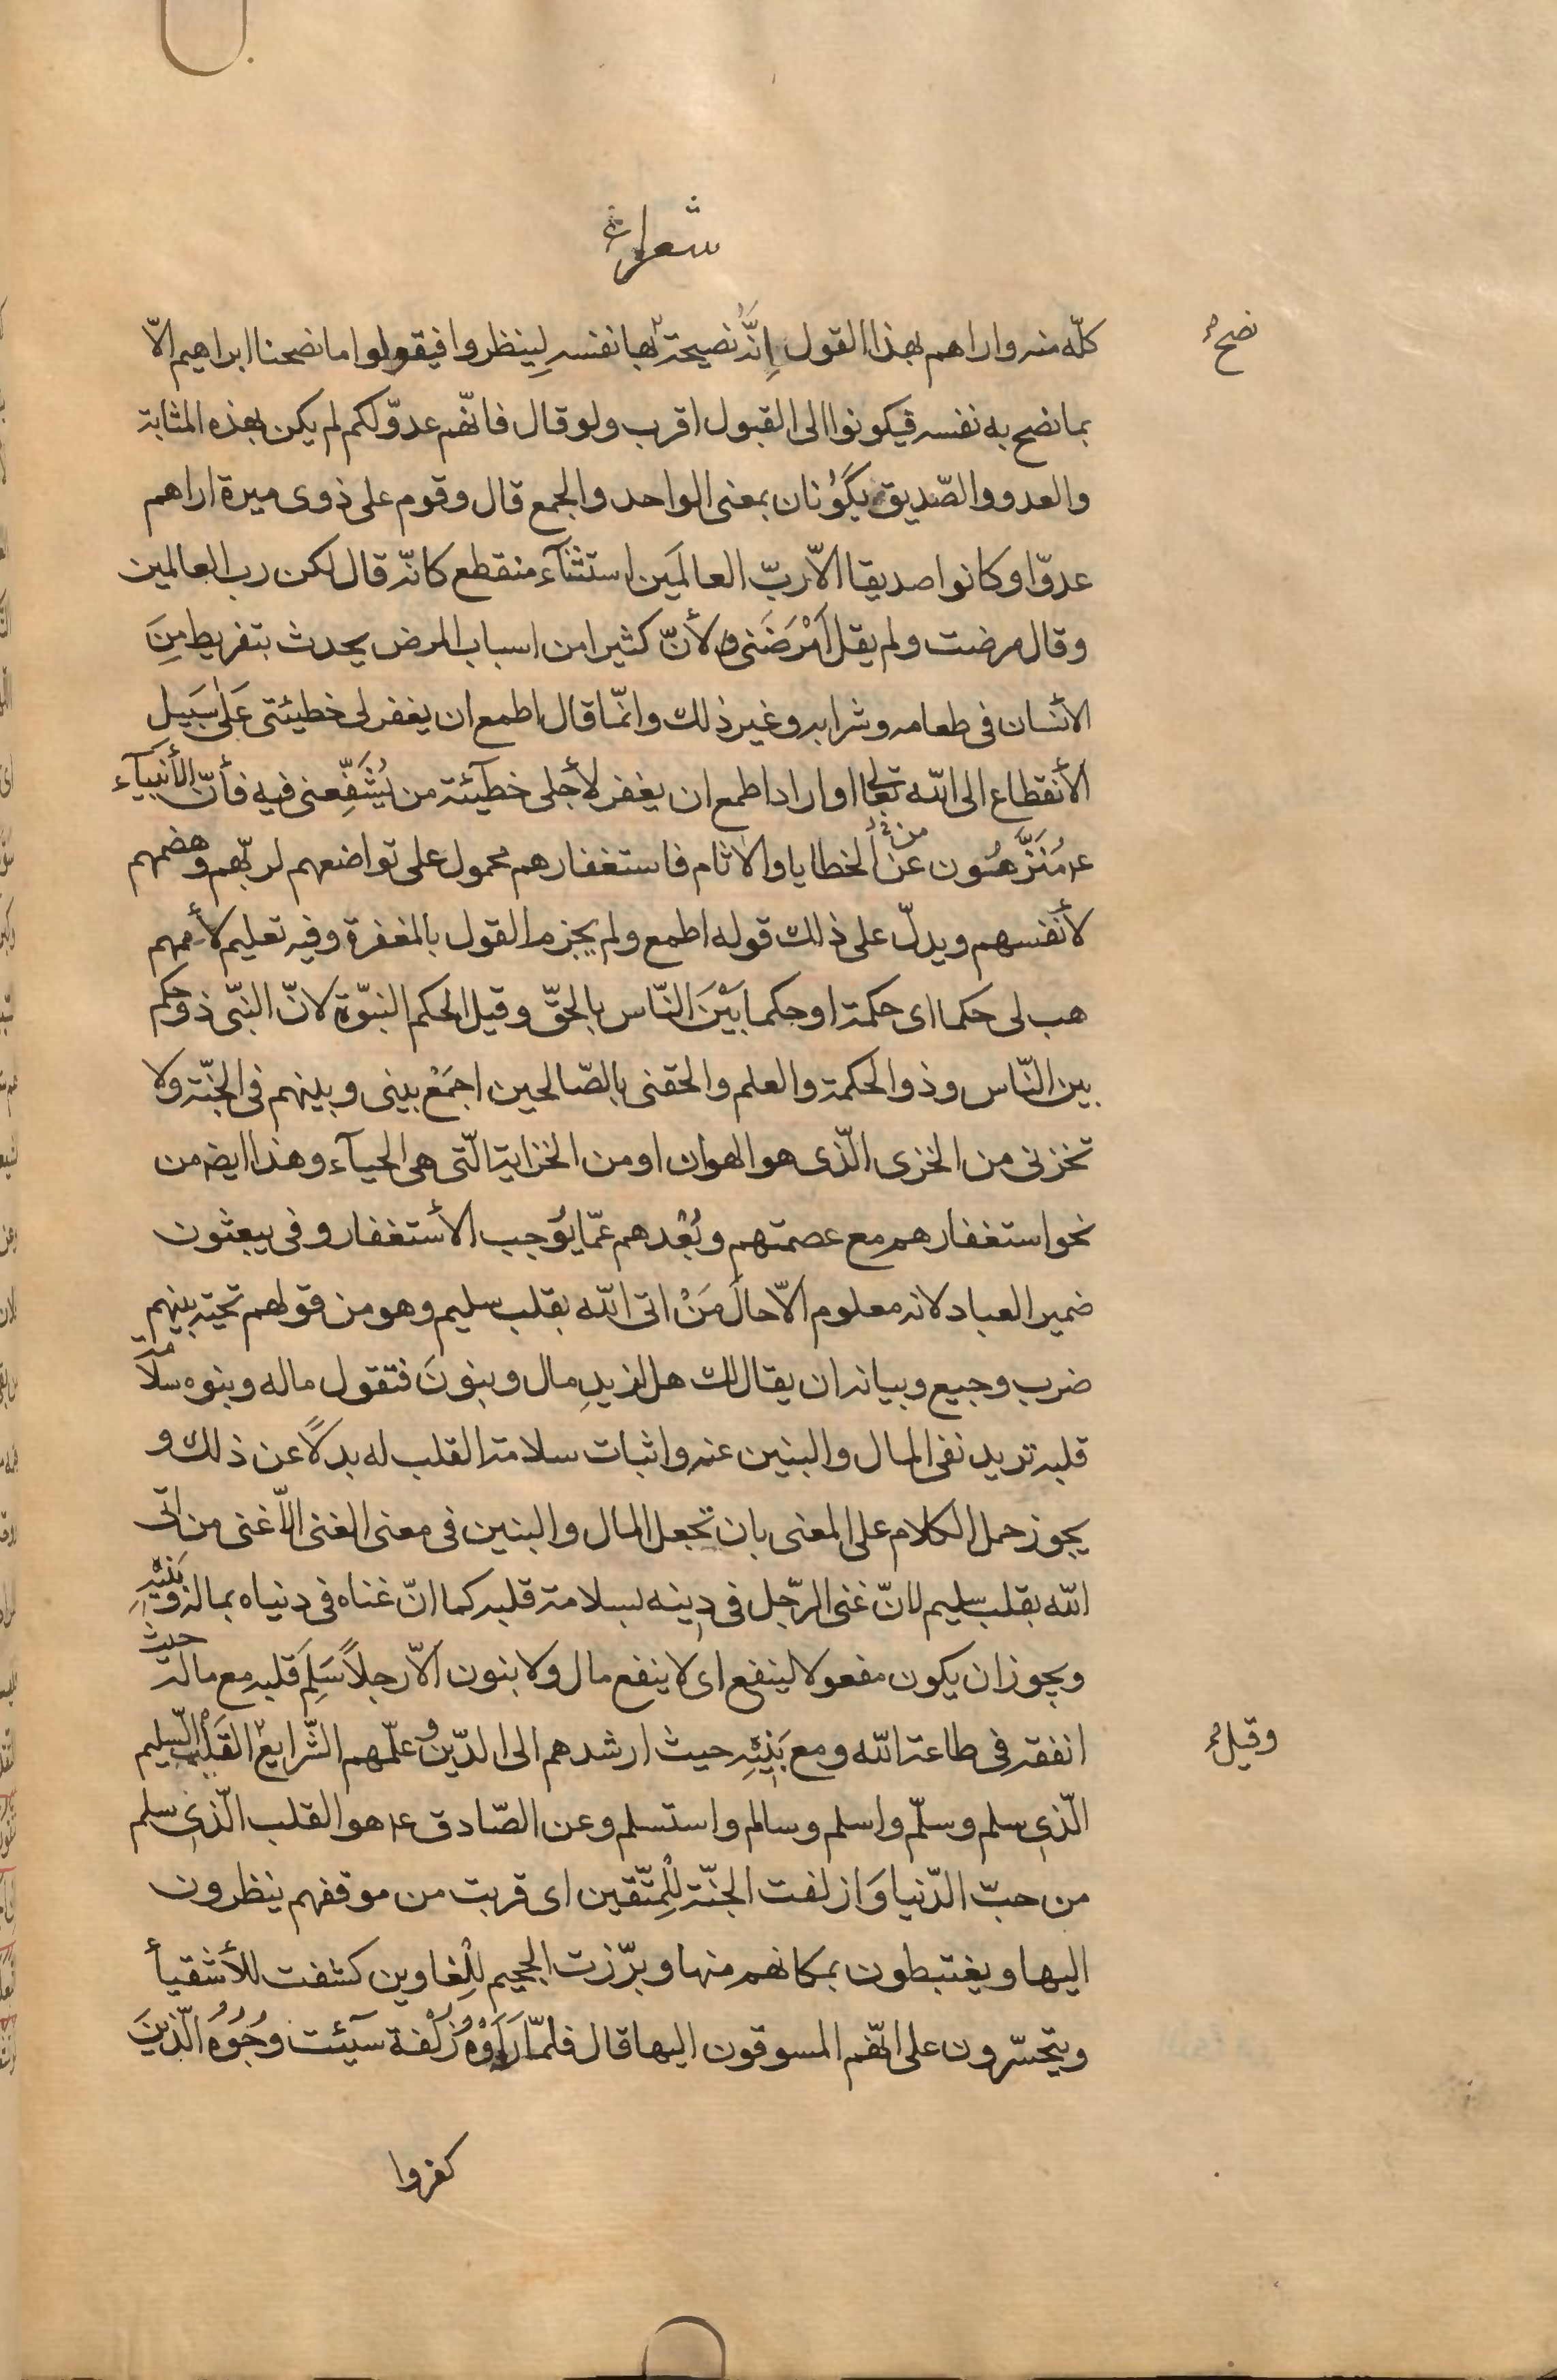 شعراء
كلّه منه واراهم بهذا القول اِنَّهُ نصيحة بها نفسه لِينظروا فيقولوا ما نصحنا ابراهيم الّا
نصح
بما نصح به نفسه فيكونوا الى القبول اقرب ولو قال فانّهم عدوّ لكم لم يكن بهذه المثابة
والعدو والصّديق يَكُونان بمعنى الواحد والجمع قال وقوم على ذوى ميرة اراهم
عدوّا وكانوا صديقا الّا ربّ العالمَين استثنآء منقطع كانّه قال لكن رب العالمين
وقال مرضت ولم يقل اَمْرَضَنى لأنّ كثيرا من اسباب المرض يحدث بتفريط مِنَ
الأنسان فى طعامه وشرابه وغير ذلك وانمّا قال اطمع ان يغفر لى خطيئتى عَلىٰ سَبَيلِ
الأنقطاع الى الله تعالى او اراد اطمع ان يغفر لأجلى خطآيئة من يُشَفِّعنى فيه فأنّ الأنبيآء
ع‍ مُنَزَّهُون عن من الخطايا والاٰثام فاستغفارهم محمول على تواضعهم لربّهم وهضمهم
لأنفسهم ويدلّ على ذلك قوله اطمع ولم يجزم القول بالمغفرة وفيه تعليم لأممهم
هب لى حكما اى حكمة او حكما بَيْنَ النّاس بالحقّ وقيل الحكم النبّوة لانّ النبّى ذو حكم
بين النّاس وذو الحكمة والعلم والحقنى بالصّالحين اجمَعْ بينى وبينهم فى الجنّة ولا
تخزنى من الخزى الّذى هو الهوان او من الخزاية الّتى هى الحيآء وهذا ايضه من
نحو استغفارهم مع عصمتهم وبُعْدهم عمّا يوُجب الأستغفار وفى يبعثون
ضمير العباد لانه معلوم الّا حالَ مَنْ اتى الله بقلب سليم وهو من قولهم تحيّة بينهم
ضرب وجيع وبيانه ان يقال لك هل لزيدِ مال وبنونَ فتقول ماله وبنوه سلامة
قلبه تريد نفى المال والبنين عنه واثبات سلامة القلب له بدلاً عن ذلك و
يجوز حمل الكلام على المعنى بان تجعل المال والبنين فى معنى الغنى الّا غنى من اتى
الله بقلب سليم لانّ غنى الرّجل فى دينه بسلامة قلبه كما انّ غناه فى دنياه بماله وبَنيْهِ
ويجوز ان يكون مفعولا لينفع اى لا ينفع مال ولا بنون الّا رجلاً سَلِمَ قلبه مع ماله حيث
انفقه فى طاعة الله ومع بَنيْهِ حيث ارشدهم الى الدّين وعلّمهم الشّرايع القَلْب السّليم
وقيل
الّذى سلم وسلّم واسلم وسالم واستسلم وعن الصّادق ع‍ هو القلب الّذى سلم
من حبّ الدّنيا وَازلفت الجنّة لِلْمتّقين اى قربت من موقفهم ينظرون
اليها ويغتبطون بمكانهم منها وبرّزت الجحيم لِلْغاوين كشفت للأشقيأ
ويتحسّرون على انّهم المسوقون اليها قال فلمّا رَاَوْهُ زُلْفة سيٓئت وُجُوُهُ الّذينَ
كفروا